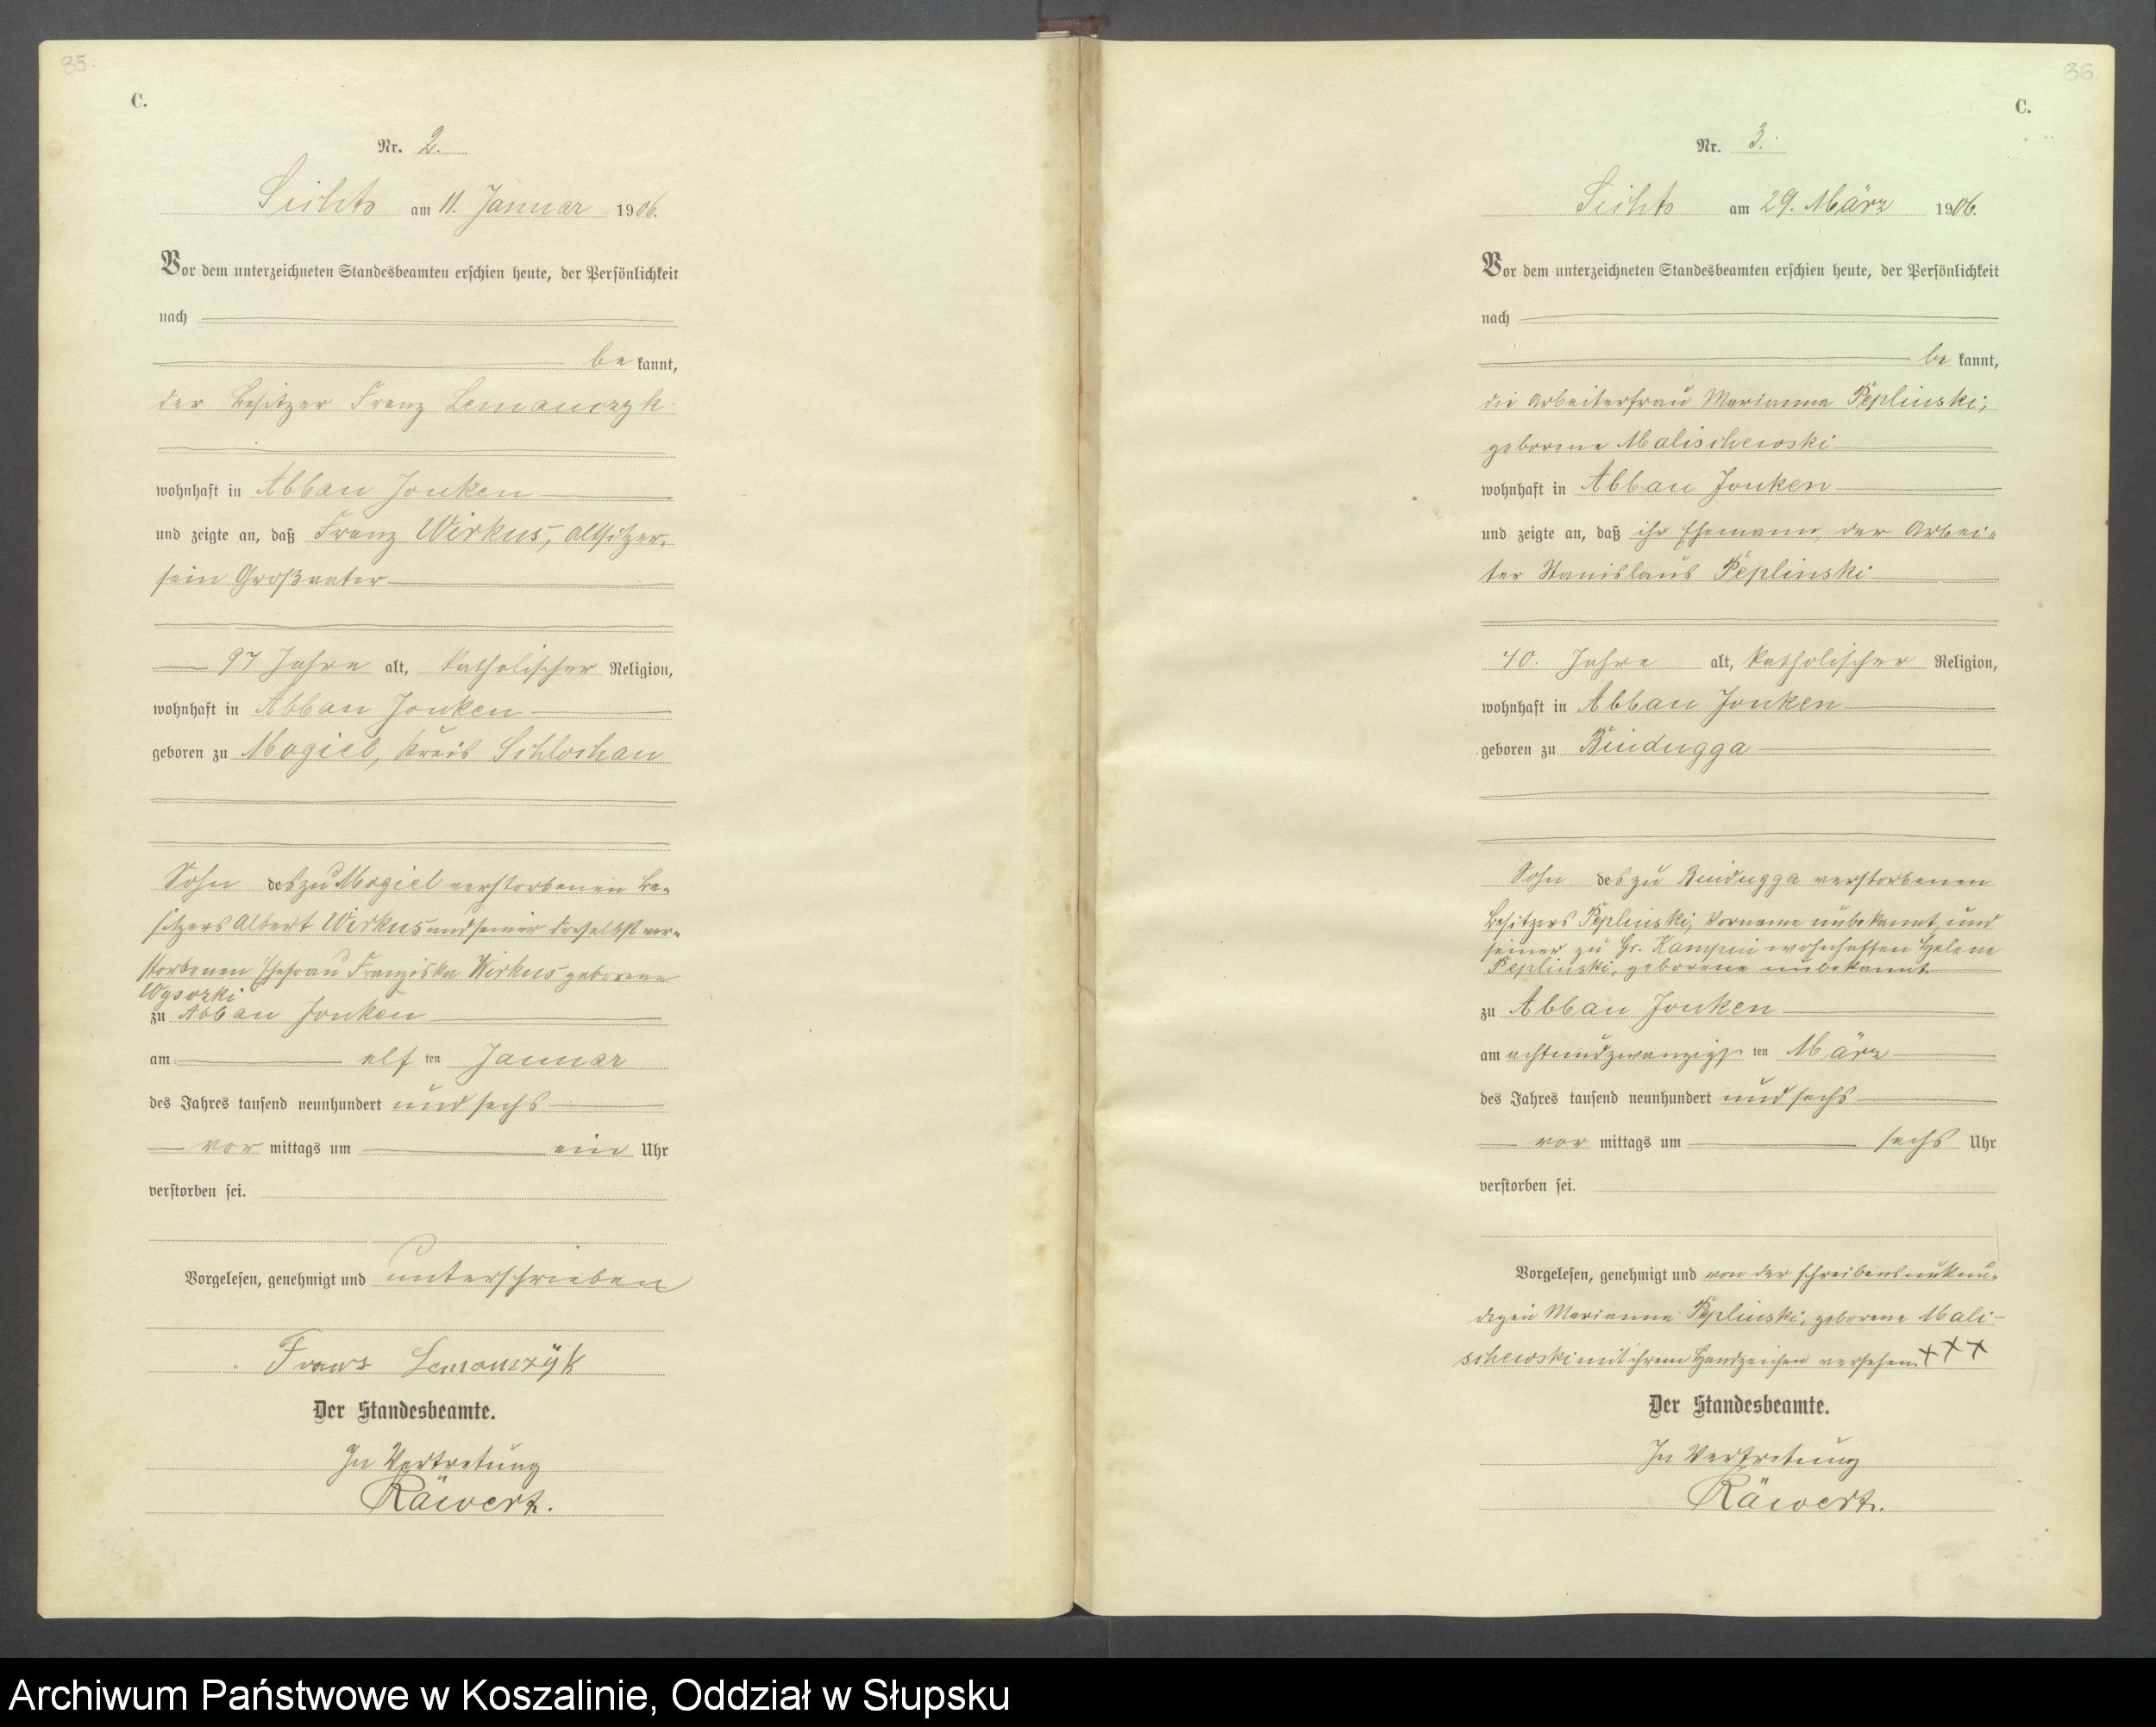 35.
C.
Nr. 2.
am 11. Januar 1906.
Vor dem unterzeichneten Standesbeamten erschien heute, der Persönlichkeit
nach
be kannt,
der Besitzer Franz Lemanczyk
wohnhaft in Abbau Jonken
und zeigte an, daß Franz Wirkus, Altsitzer,
sein Großvater
97 Jahre alt, katholischer Religion,
wohnhaft in Abbau Jonken
geboren zu Mogiel, Kreis Schlochau
Sohn des zu Mogiel verstorbenen Be-
sitzers Albert Wirkus und seiner daselbst ver-
storbenen Ehefrau Franziska Wirkus geborene
Wysozki
zu Abbau Jonken
am elf ten Januar
des Jahres tausend neunhundert und sechs
vor mittags um ein Uhr
verstorben sei.
Vorgelesen, genehmigt und unterschrieben
Franz Lemanczÿk
Der Standesbeamte.
In Vertretung
Räwert.
36.
C.
Nr. 3.
am 29. März 1906.
Vor dem unterzeichneten Standesbeamten erschien heute, der Persönlichkeit
nach
be kannt,
die Arbeiterfrau Marianna Peplinski,
geborene Malischewski
wohnhaft in Abbau Jonken
und zeigte an, daß ihr Ehemann, der Arbei-
ter Stanislaus Peplinski
40. Jahre alt, katholischer Religion,
wohnhaft in Abbau Jonken
geboren zu Bindugga
Sohn des zu Bindugga verstorbenen
Besitzers Peplinski, Vorname unbekannt, und
seiner zu Gr. wohnhaften Helene
Peplinski, geborene unbekannt
zu Abbau Jonken
am achtundzwanzigs ten März
des Jahres tausend neunhundert und sechs
vor mittags um sechs Uhr
verstorben sei.
Vorgelesen, genehmigt und von der schreibensunkun-
digen Marianna Peplinski, geborene Mali-
schewski mit ihrem Handzeichen versehen. +++
Der Standesbeamte.
In Vertretung
Räwert.
Archiwum Państwowe w Koszalinie, Oddział w Słupsku